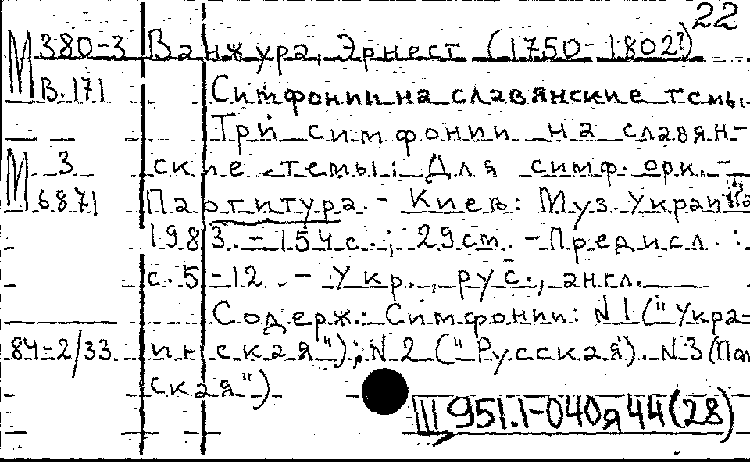 22
М 380-3 Ванжура, Эрнест (1750-1802?)
В.171 Симфонии на славянские темы
Три симфонии на славян-
М 3 ские темы: Для симф. орк. -
6871 Партитура. - Киев: Муз. Украина
1983. - 154 с.; 29 см. - Предисл.:
с. 5-12. - Укр., рус., англ.
Содерж.: Симфонии: N 1 ("Укра-
84-2/33 инская"); N 2 ("Русская"). N 3 (Поль
ская")
III 951.1-040я44(28)